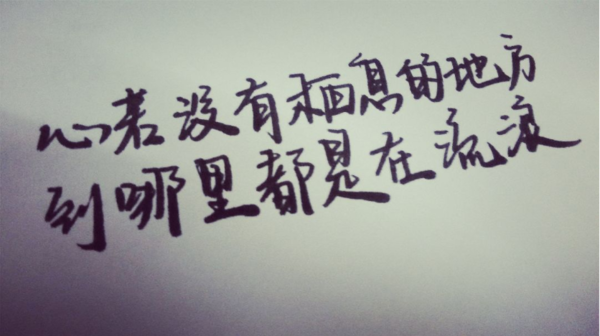 心若没有栖息的地方
到哪里都是在流浪